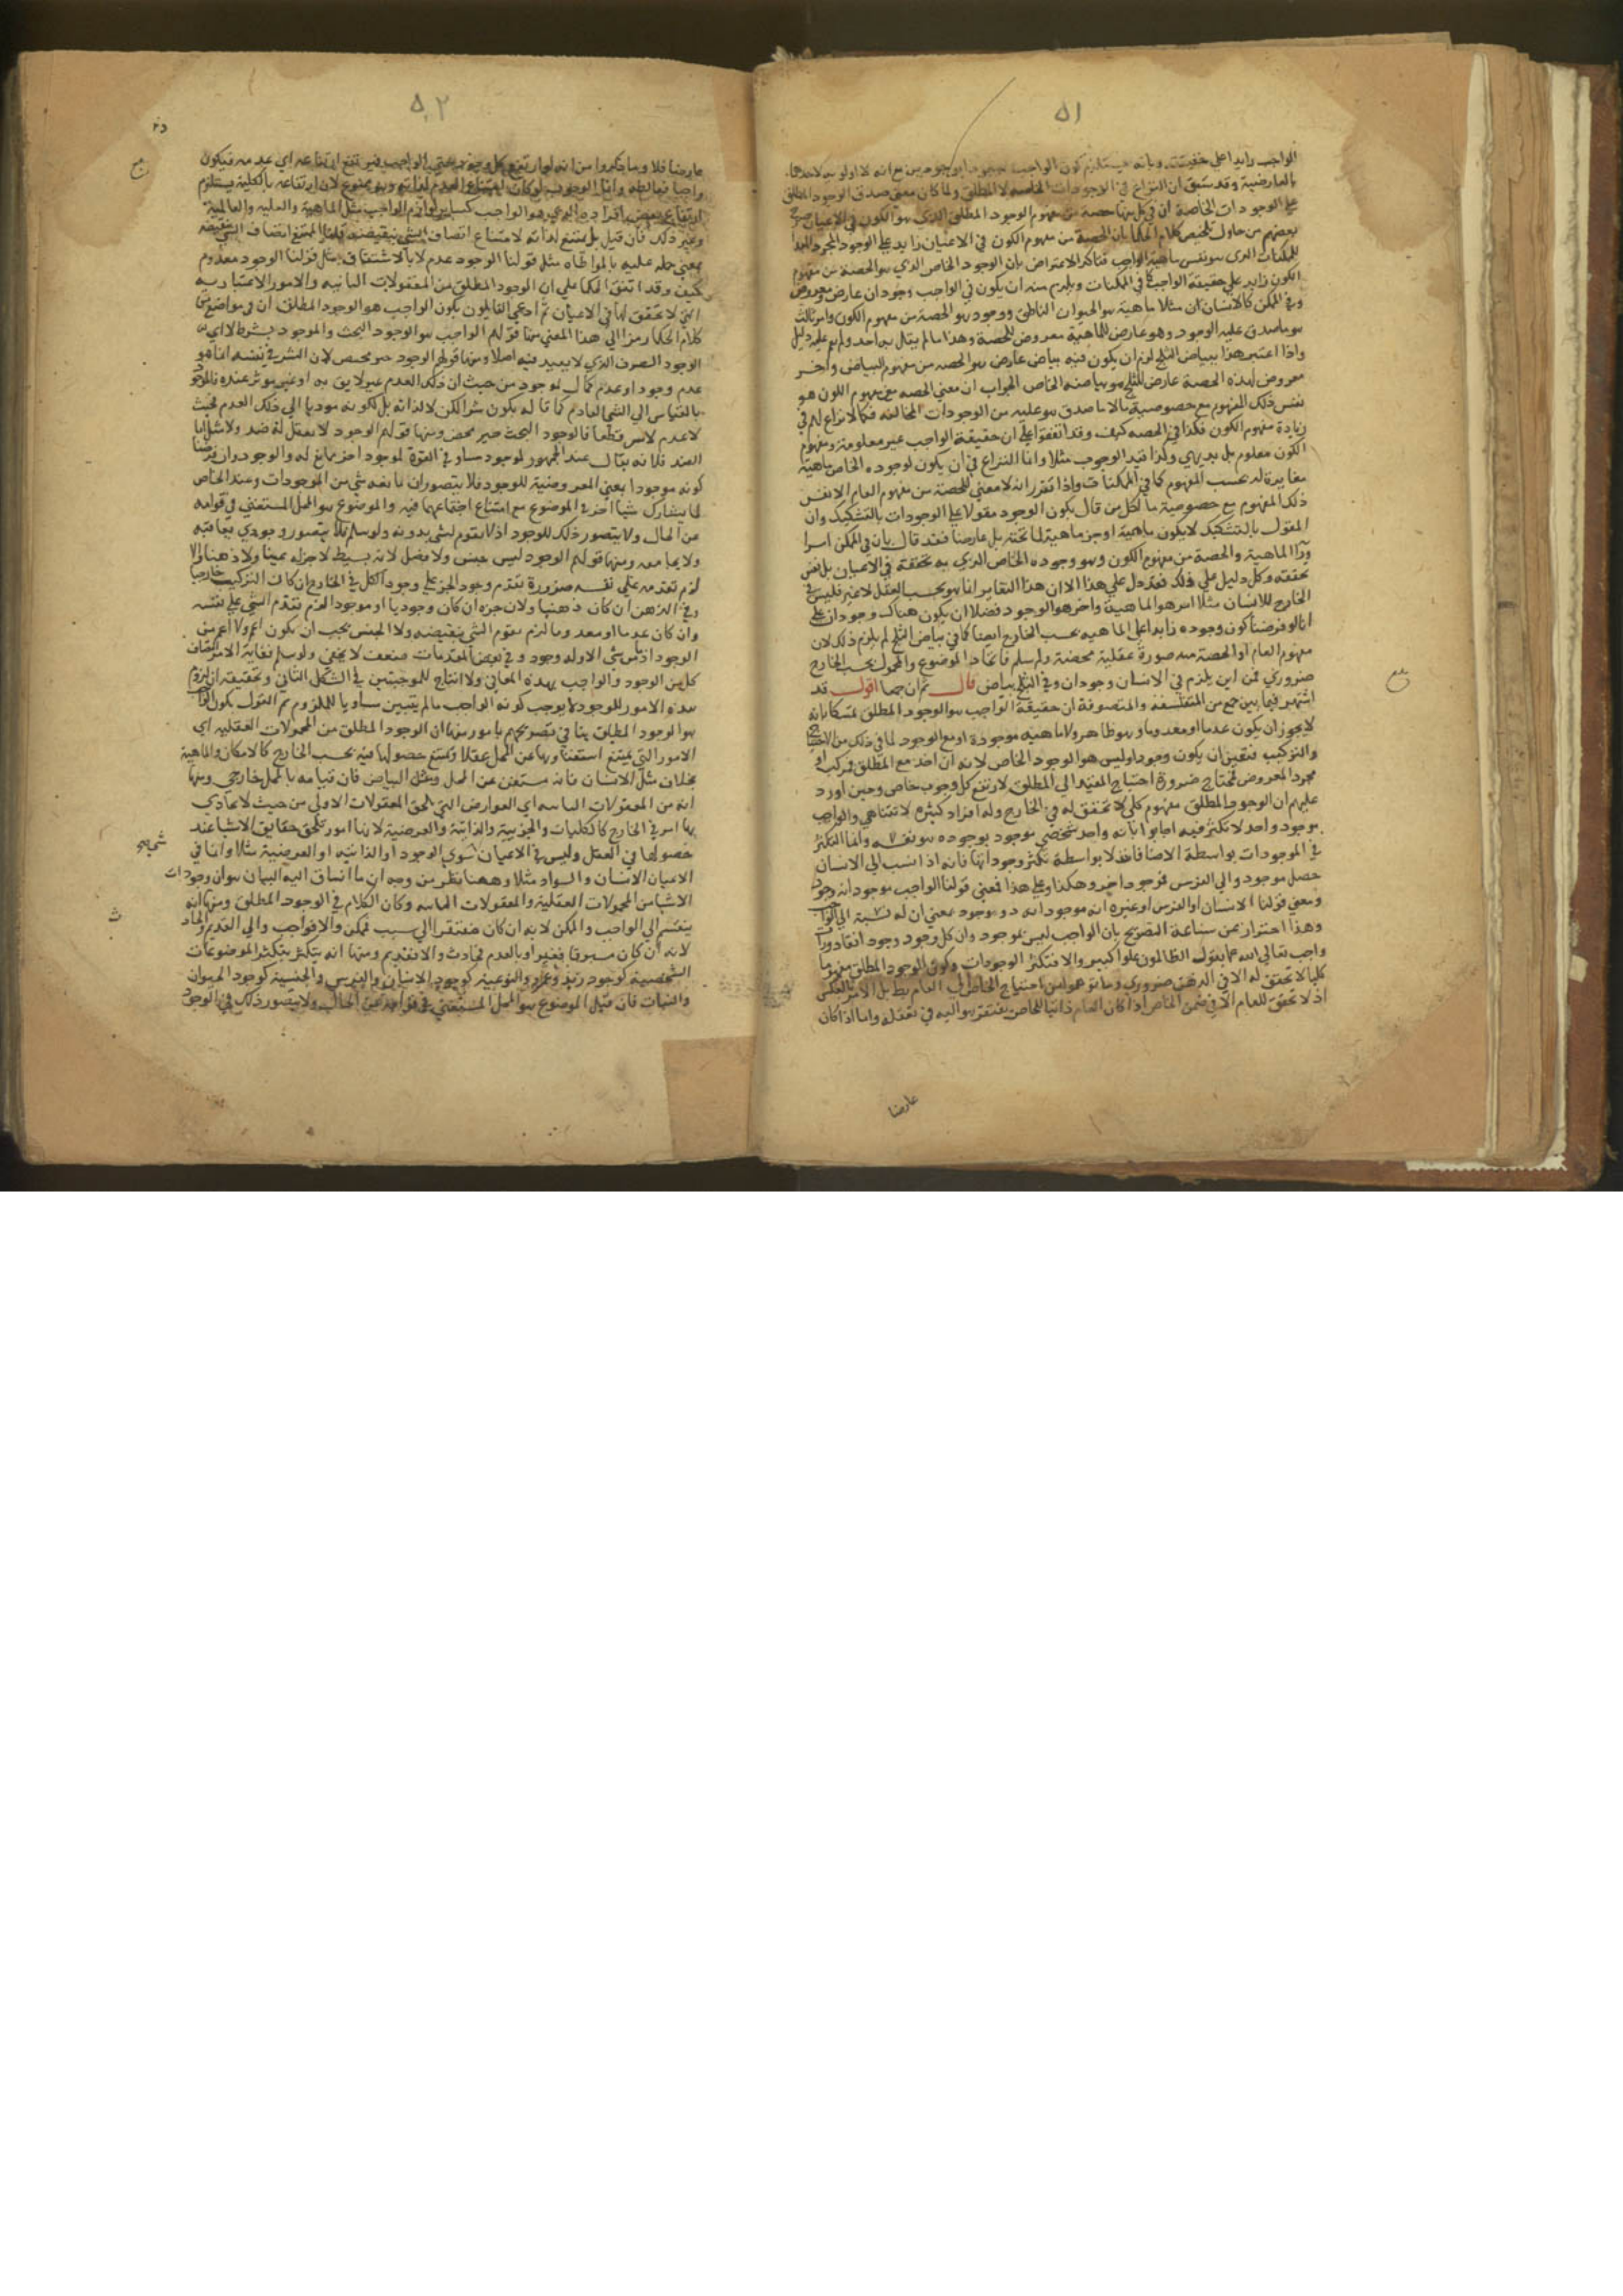 ٥١
الواجب زايدا على حقيقته وبانه يستلزم كون الواجب موجودا بوجودين مع انه لا اولويه لاحدهما
بالعارضية وقد سبق ان النزاع في الوجودات الخاصه لا المطلق ولما كان معنى صدق الوجود المطلق
على الوجودات الخاصة ان في كل منها حصة من مفهوم الوجود المطلق الذي هو الكون في الاعيان صرح
بعضهم من حاول تلخيص كلام الحكما بان الحصة من مفهوم الكون في الاعيان زايد على الوجود المجرد المبدا
للمكنات الذي هو نفس ماهية الواجب فتاكد الاعتراض بان الوجود الخاص الذي هو الحصة من مفهوم
الكون زايد على حقيقة الواجب كما في الممكنات ويلزم منه ان يكون في الواجب وجودان عارض ومعروض
وفي الممكن كالانسان ان مثلا ماهية هو الحيوان الناطق ووجود هو الحصة من مفهوم الكون وامر ثالث
هو ما صدق عليه الوجود وهو عارض للماهية معروض للحصة وهذا ما لم يقل به احد ولم يقم عليه دليل
واذا اعتبر هذا ببياض الثلج لزم ان يكون فيه بياض عارض هو الحصه من مفهوم البياض واخر
معروض لهذه الحصة عارض للثلج هو بياضه الخاص الجواب ان معنى الحصه من مفهوم الكون هو
نفس ذلك المفهوم مع خصوصية ما لا ما صدق هو عليه من الوجودات المخالفه فكما لا نزاع لهم في
زيادة مفهوم الكون فكذا في الحصه كيف وقد اتفقوا على ان حقيقة الواجب غير معلومة ومفهوم
الكون معلوم بل بديهي وكذا قيد الوجوب مثلا وانما النزاع في ان يكون لوجوده الخاص ماهية
مغايرة له بحسب المفهوم كما في الممكنات واذا تقرر انه لا معنى للحصة من مفهوم العام الا نفس
ذلك المفهوم مع خصوصية ما فكل من قال بكون الوجود مقولا على الوجودات بالتشكيك وان
المقول بالتشكيك لا يكون ماهية او جز ماهية لما تحته بل عارضا فقد قال بان في الممكن امرا
ورا الماهية والحصة من مفهوم الكون وهو وجوده الخاص الذي به تحققه في الاعيان بل نفس
تحققه وكل دليل على ذلك فقد دل على هذا الا ان هذا التغاير انما هو بحسب العقل لا غير فليس في
الخارج للانسان مثلا امر هو الماهية واخر هو الوجود فضلا ان يكون هناك وجودان على
انا لو فرضنا كون وجوده زايدا على الماهيه بحسب الخارج ايضا كما في بياض الثلج لم يلزم ذلك لان
مفهوم العام او الحصة منه صورة عقلية محضة ولو سلم فاتحاد الموضوع والمحمول بحسب الخارج
ضروري فمن اين يلزم في الانسان وجودان وفي الثلج بياض قال ثم ان جمعا اقول قد
اشتهر فيما بين جمع من المتفلسفة والمتصوفة ان حقيقة الواجب هو الوجود المطلق تمسكا بانه
لا يجوز ان يكون عدما او معدوما وهو ظاهر ولا ماهيه موجودة او مع الوجود لما في ذلك من الاحتياج
والتركيب فتعين ان يكون وجودا وليس هو الوجود الخاص لانه ان اخذ مع المطلق فمركب او
مجرد المعروض فمحتاج ضرورة احتياج المقيد الى المطلق لارتفع كل وجود خاص وحين اورد
عليهم ان الوجود المطلق مفهوم كلي لا تحقق له في الخارج وله افراد كثيره لا تتناهى والواجب
موجود واحد لا تكثر فيه اجابوا بانه واحد شخصي موجود بوجوده هو نفسه وانما التكثر
في الموجودات بواسطة الاضافات لا بواسطة تكثر وجوداتها فانه اذا نسب الى الانسان
حصل موجود والى الفرس فموجود اخر وهكذا وعلى هذا فمعنى قولنا الواجب موجود انه وجود
ومعنى قولنا الانسان او الفرس او غيره انه موجود انه ذو وجود بمعنى ان له نسبة الى الواجب
وهذا احتراز عن شناعة التصريح بان الواجب ليس بموجود وان كل وجود وجود القاذورات
واجب تعالى الله عما يقول الظالمون علوا كبيرا والا فتكثر الوجودات وكون الوجود المطلق مفهوما
كليا لا تحقق له الا في الذهن ضروري وما توهموا من احتياج الخاص الى العام باطل بل الامر بالعكس
اذ لا تحقق للعام الا في ضمن الخاص اذا كان العام ذاتيا للخاص يفتقر هو اليه في تعقله واما اذا كان
عارضا
٥٢
عارضا فلا وما ذكروا من انه لو ارتفع كل وجود حتى الواجب فيمتنع ارتفاعه اي عدمه فيكون
واجبا فمغالطه وانما الوجوب لو كان امتناع العدم لذاته وهو ممنوع لان ارتفاعه بالكلية يستلزم
ارتفاع بعض افراده الذي هو الواجب كساير لوازم الواجب مثل الماهية والعلية والعالمية
وغير ذلك فان قيل بل يمتنع لذاته لامتناع اتصاف الشي بنقيضه قلنا الممتنع اتصاف الشي بنقيضه
بمعنى حمله عليه بالمواطاه مثل قولنا الوجود عدم لا بالاشتقاق مثل قولنا الوجود معدوم
كيف وقد اتفق الحكما على ان الوجود المطلق من المعقولات الثانيه والامور الاعتباريه
التي لا تحقق لها في الاعيان ثم ادعى القايلون بكون الواجب هو الوجود المطلق ان في مواضع من
كلام الحكما رمزا الى هذا المعنى منها قولهم الواجب هو الوجود البحت والموجود بشرط لا اي
الوجود الصرف الذي لا تقييد فيه اصلا ومنها قولهم الوجود خير محض لان الشر في نفسه انما هو
عدم وجود او عدم كمال لموجود من حيث ان ذلك العدم غير لايق به او غير موثر عنده فالوجود
بالقياس الى الشي العادم كماله قد يكون شرا لكن لا لذاته بل لكونه موديا الى ذلك العدم فحيث
لا عدم لا شر قطعا فالوجود البحت خير محض ومنها قولهم الوجود لا يعقل له ضد ولا مثل اما
الضد فلانه يقال عند الجمهور لموجود مساو في القوة لموجود اخر ممانع له والوجود وان فرضنا
كونه موجودا بمعنى المعروضية للوجود فلا يتصور ان يمانعه شي من الموجودات وعند الخاص
لما يشارك شيا اخر في الموضوع مع امتناع اجتماعهما فيه والموضوع هو المحل المستغني في قوامه
عن الحال ولا يتصور ذلك للوجود اذ لا تقوم لشي بدونه ولو سلم فلا يتصور وجودي يعاقبه
ولا يجامعه ومنها قولهم الوجود ليس له جنس ولا فصل لانه بسيط لا جز له عينا ولا ذهنا والا
لزم تقدمه على نفسه ضرورة تقدم وجود الجز على وجود الكل في الخارج ان كان التركيب خارجيا
وفي الذهن ان كان ذهنيا ولان جزه ان كان وجوديا او موجودا لزم تقدم الشي على نفسه
وان كان عدما او معدوما لزم تقوم الشي بنقيضه ولان الجنس يجب ان يكون اعم ولا اعم من
الوجود اذ ما من شي الا وله وجود وفي بعض المقدمات ضعف لا يخفى ولو سلم فغاية الامر اتصاف
كل من الوجود والواجب بهذه المعاني ولا انتاج للموجبتين في الشكل الثاني وتحقيقه ان لزوم
هذه الامور للوجود لا يوجب كونه الواجب ما لم يتبين مساويا للملزوم ثم القول بكون الواجب
هو الوجود المطلق ينافي تصريحهم بامور منها ان الوجود المطلق من المحمولات العقليه اي
الامور التي يمتنع استغناوها عن المحل عقلا ويمتنع حصولها فيه بحسب الخارج كالامكان والماهية
بخلاف مثل الانسان فانه مستغن عن المحل ومثل البياض فان قيامه بالمحل خارجي ومنها
انه من المعقولات الثانيه اي العوارض التي تلحق المعقولات الاولى من حيث لا يحاذي
بها امر في الخارج كالكليات والجزيية والذاتية والعرضية لانها امور تلحق حقايق الاشيا عند
حصولها في العقل وليس في الاعيان شي هو الوجود او الذاتيه او العرضية مثلا وانما في
الاعيان الانسان والسواد مثلا وههنا نظر من وجه ان ما انساق اليه البيان هو ان وجودات
الاشيا من المحمولات العقلية والمعقولات الثانيه وكان الكلام في الوجود المطلق ومنها انه
ينقسم الى الواجب والممكن لانه ان كان مفتقرا الى سبب فممكن والا فواجب والى القديم والحادث
لانه ان كان مسبوقا بغيره او بالعدم فحادث والا فقديم ومنها انه يتكثر بتكثر الموضوعات
الشخصية كوجود زيد وعمرو والنوعية كوجود الانسان والفرس والجنسية كوجود الحيوان
والنبات فان قيل الموضوع هو المحل المستغني في قوامه عن الحال ولا يتصور ذلك في الوجود